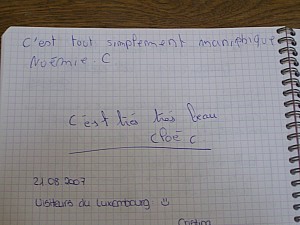 C'est tout simplement manifhique
Noémie C
C'est trés trés beau
Cloé C
21.08.2007
Visiteurs du Luxembourg ☺
Cristina